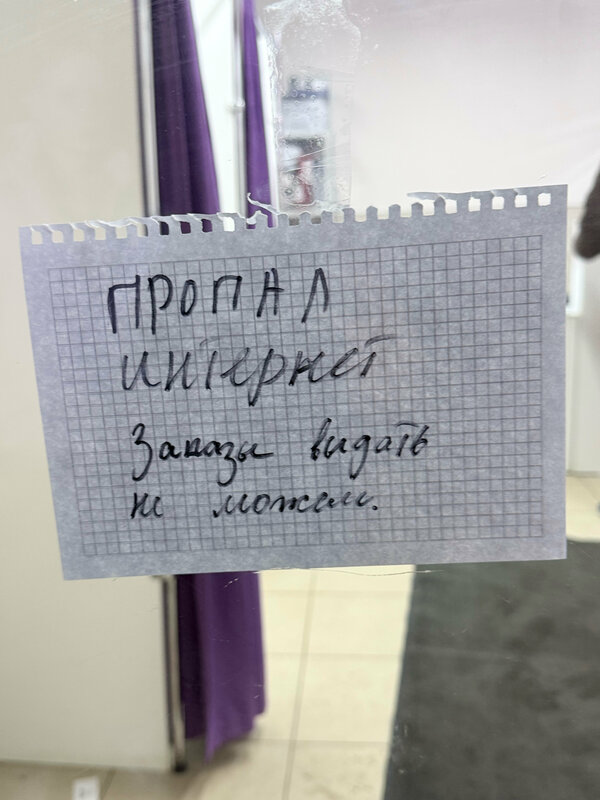 ПРОПАЛ
интернет
Заказы видать
не можем.